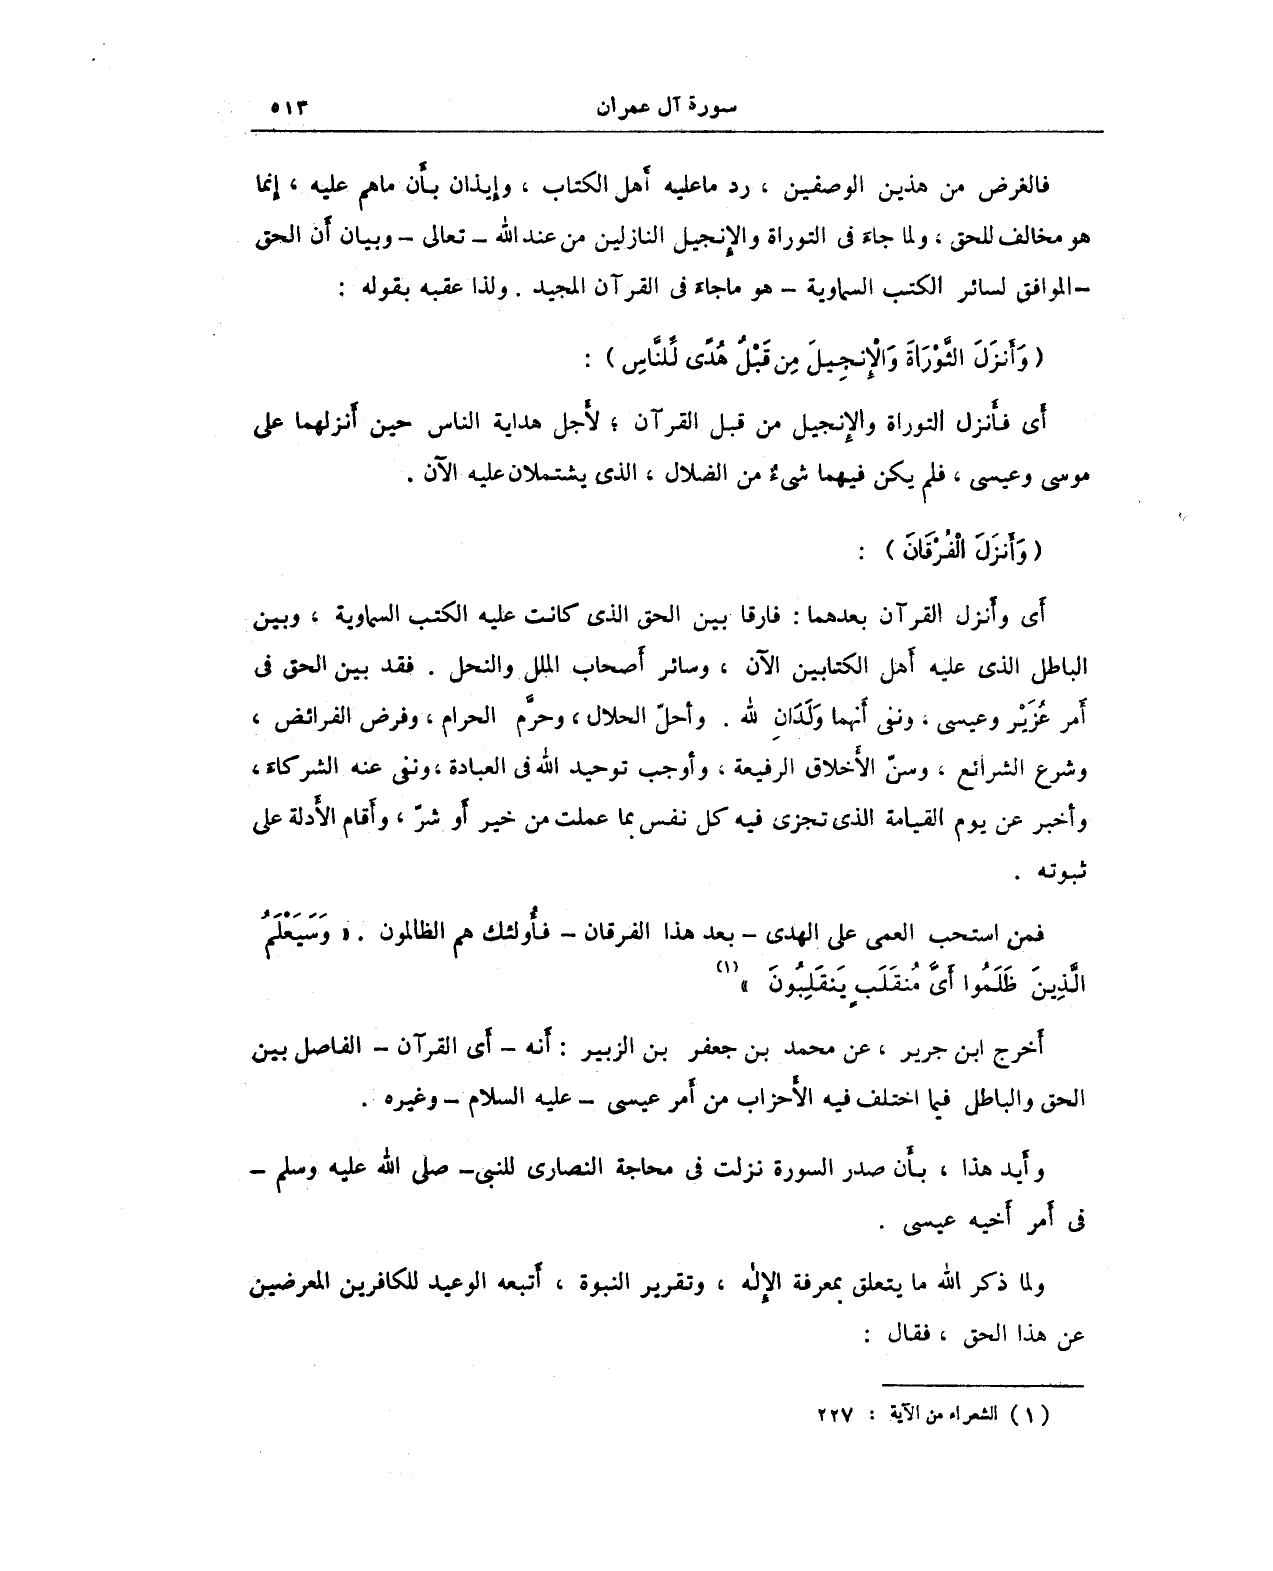 سورة آل عمران ٥١٣
فالغرض من هذين الوصفين ، رد ماعليه أهل الكتاب ، وإيذان بأن ماهم عليه ، إنما
هو مخالف للحق ، ولما جاءَ فى التوراة والإنجيل النازلين من عند الله – تعالى – وبيان أن الحق
–الموافق لسائر الكتب السماوية – هو ماجاءَ فى القرآن المجيد . ولذا عقبه بقوله :
( وَأَنزَلَ التَّوْرَاةَ وَالْإِنجِيلَ مِن قَبْلُ هُدًى لِّلنَّاسِ ) :
أى فأنزل التوراة والإنجيل من قبل القرآن ؛ لأجل هداية الناس حين أنزلهما على
موسى وعيسى ، فلم يكن فيهما شىءٌ من الضلال ، الذى يشتملان عليه الآن .
( وَأَنزَلَ الْفُرْقَانَ ) :
أى وأنزل القرآن بعدهما : فارقا بين الحق الذى كانت عليه الكتب السماوية ، وبين
الباطل الذى عليه أهل الكتابين الآن ، وسائر أصحاب الملل والنحل . فقد بين الحق فى
أمر عُزَيْر وعيسى ، ونفى أنهما وَلَدَانِ لله . وأحلّ الحلال ، وحرَّم الحرام ، وفرض الفرائض ،
وشرع الشرائع ، وسنّ الأخلاق الرفيعة ، وأوجب توحيد الله فى العبادة ،ونفى عنه الشركاءَ ،
وأخبر عن يوم القيامة الذى تجزى فيه كل نفس بما عملت من خير أو شرّ ، وأقام الأدلة على
ثبوته .
فمن استحب العمى على الهدى – بعد هذا الفرقان – فأُولئك هم الظالمون . « وَسَيَعْلَمُ
الَّذِينَ ظَلَمُوا أَىَّ مُنقَلَبٍ يَنقَلِبُونَ » (١)
أخرج ابن جرير ، عن محمد بن جعفر بن الزبير : أنه – أى القرآن – الفاصل بين
الحق والباطل فيما اختلف فيه الأحزاب من أمر عيسى – عليه السلام – وغيره .
وأيد هذا ، بأن صدر السورة نزلت فى محاجة النصارى للنبى– صلى الله عليه وسلم –
فى أمر أخيه عيسى .
ولما ذكر الله ما يتعلق بمعرفة الإله ، وتقرير النبوة ، أتبعه الوعيد للكافرين المعرضين
عن هذا الحق ، فقال :
(١) الشعراء من الآية : ٢٢٧